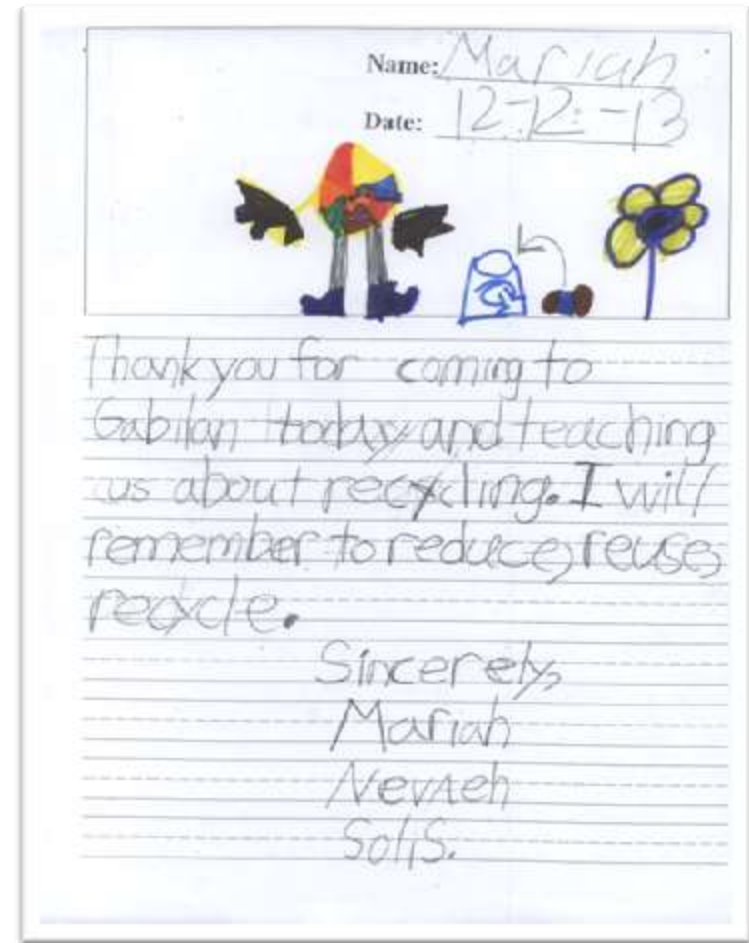 Name: Mariah
Date: 12-12-13
Thank you for coming to
Gabilan today and teaching
us about recycling. I will
remember to reduce, reuse,
recycle.
Sincerely,
Mariah
Nevaeh
Solis.